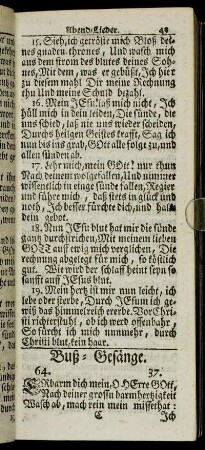 Abend-Lieder. 49
15. Sieh, ich getröste mich Bloß dei-
nes gnaden thrones, Und wasch mich
aus dem strom des blutes deines Soh-
nes, Mit dem, was er gebüßt, Ich hier
zu diesem mahl Dir meine Rechnung
thu Und meine Schuld bezahl.
16. Mein JEsu! laß mich nicht, Ich
hüll mich in dein leiden, Die sünde, die
uns schied, laß nie uns wieder scheiden,
Durchs heilgen Geistes krafft, Sag ich
nun bis ins grab, GOtt alle folge zu, und
allen sünden ab.
17. Lehr mich, mein GOtt! nur thun
Nach deinem wolgefallen, Und nimmer
wissentlich in einge sünde fallen, Regier
und führe mich, daß stets in glück und
noth, Ich besser fürchte dich, und hals
dein gebot.
18. Nun JESu blut hat mir die sünde
gantz durchstrichen, Mit meinem lieben
GOTT auf ewig mich verglichen, Die
rechnung abgelegt für mich, so köstlich
gut. Wie wird der schlaff heint seyn so
sanfft auf JEsus blut.
19. Mein hertz ist mir nun leicht, ich
lebe oder sterbe, Durch JEsum ich ge-
wiß das himmelreich ererbe. Vor Chri-
sti richterstuhl, ob ich werd offenbahr
So fürcht ich mich nunmehr, durch
Christi blut, kein haar.
Buß-Gesänge.
64. 37.
ERbarm dich mein, O HErre GOtt,
Nach deiner grossn barmhertzigkeit
Wasch ab, mach rein mein missethat:
C Ich